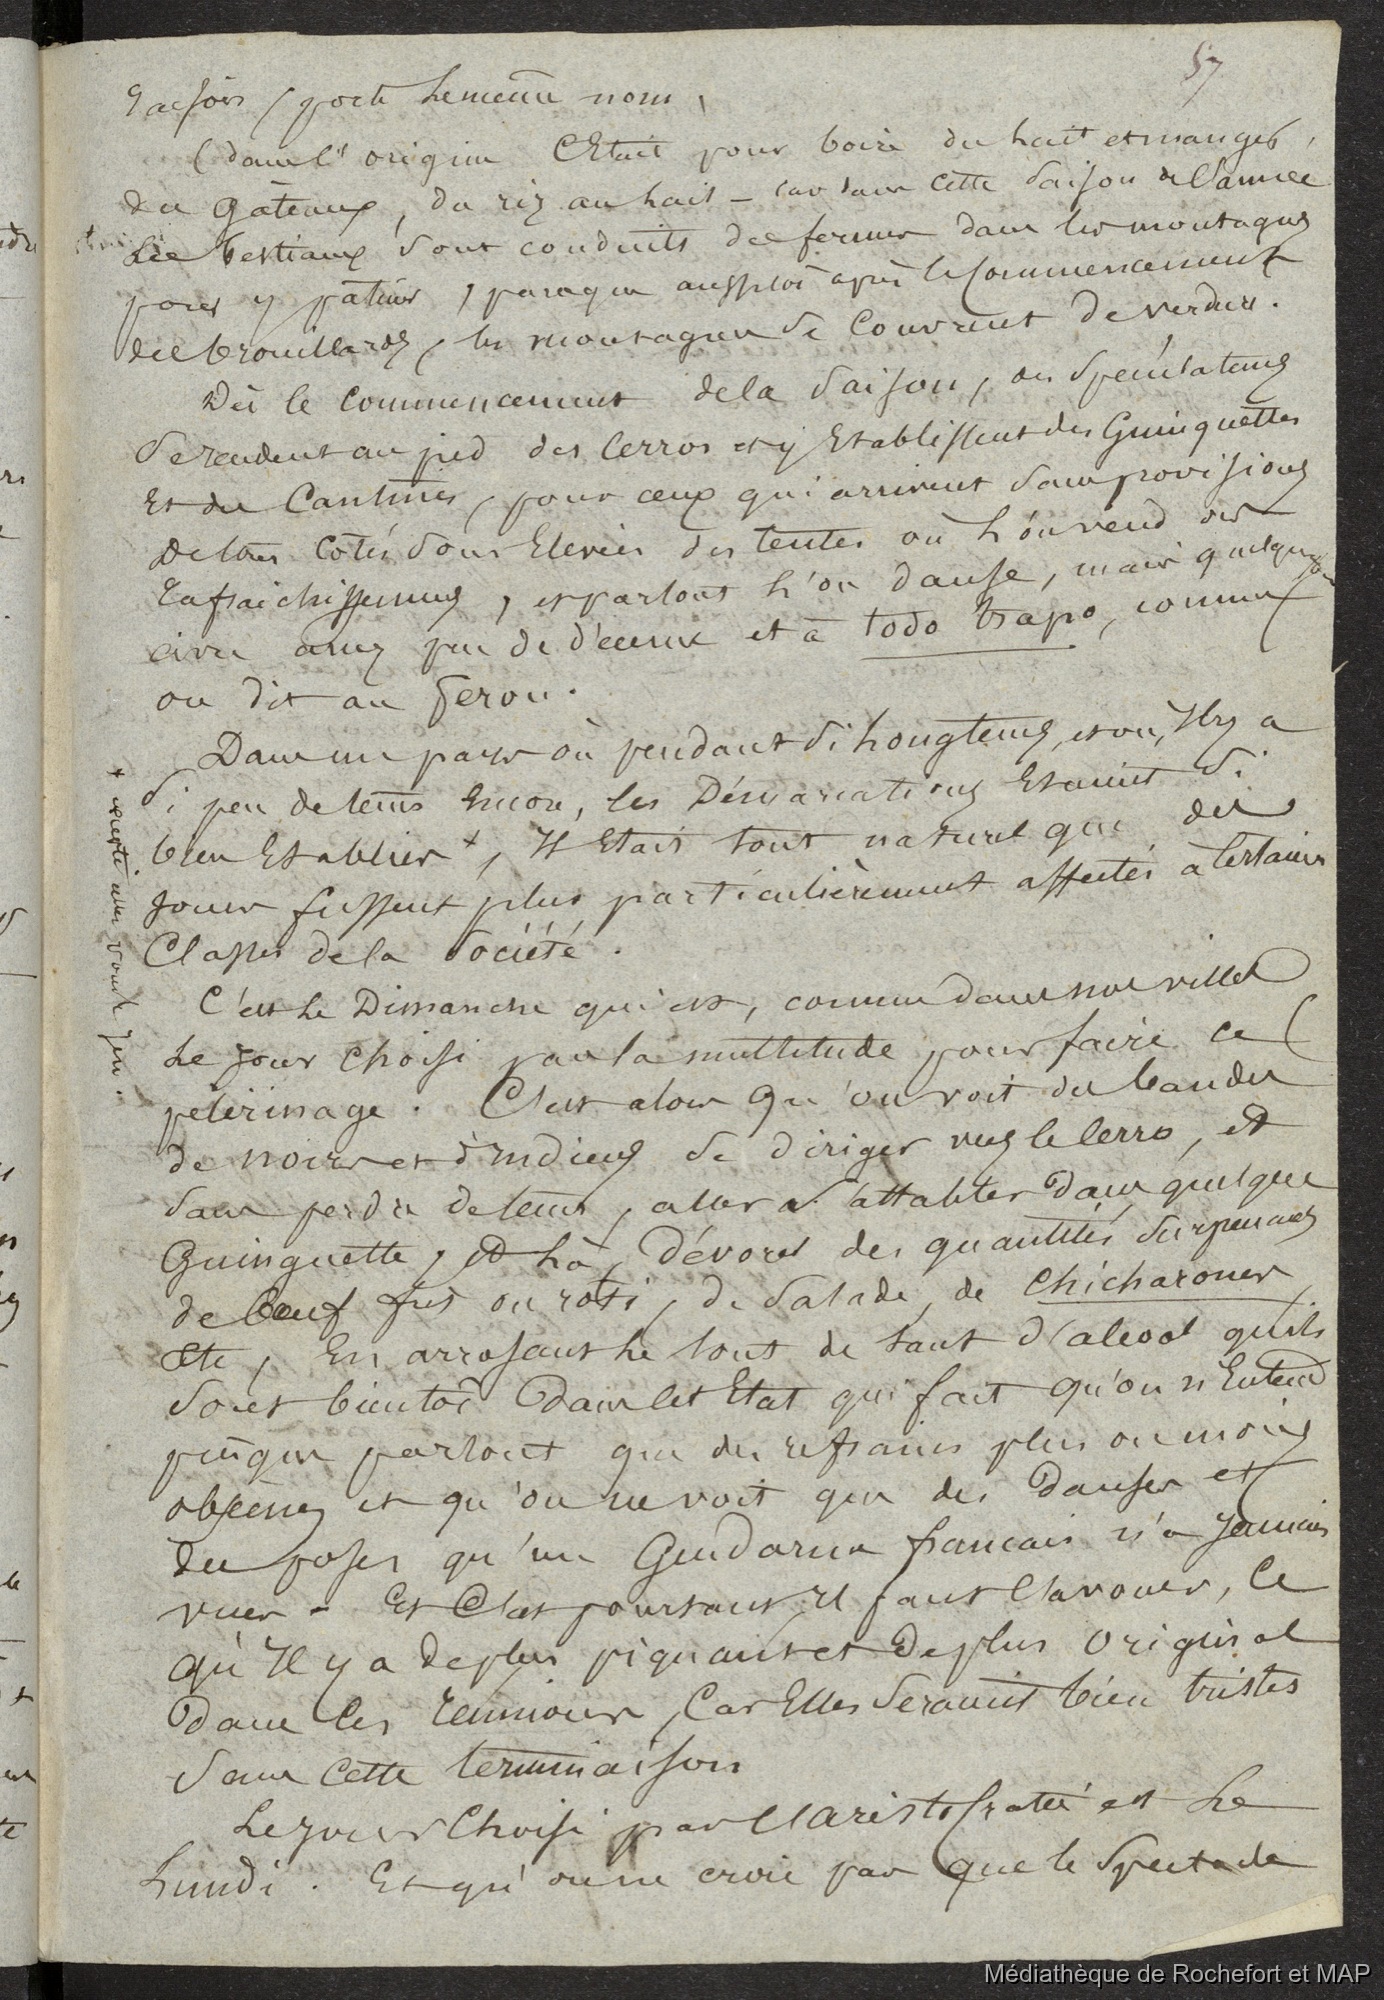 57
porte le même nom,
(dans l'origine C'Etait pour boire du lait et manger
des Gâteaux, du riz au lait - car dans cette Saison de l'année
les bestiaux sont conduits des fermes dans les montagnes
pour y pâturer, parceque aussitôt après le Commencement
des brouillards, les montagnes se Couvrent De verdure.
Dès le Commencement de la Saison, des Spéculateurs
Se rendent au pied des Cerros et y Etablissent des Guinguettes
Et des Cantines, pour ceux qui arrivent Sans provisions
De tous Cotés Sont Elevées des tentes où l'on vend des
Rafraichissemens, et partout l'on danse, mais quelquefois
avec assez peu de décence et à todo trapo, comme
on dit au Perou.
Dans un pays où pendant Si longtems, et où, Il y a
Si peu de tems Encore, les Démarcations Etaient Si
bien Etablies +, Il Etait tout naturel que des
Jours fussent plus particulièrement affectés à Certaines
Classes de la Société.
+ excepté une voute
C'est le Dimanche qui est, comme dans nos villes
le Jour Choisi par la multitude pour faire ce
pélérinage. C'est alors qu'on voit des bandes
de noirs et d'Indiens Se diriger vers le Cerro, et
Sans perdre de tems, aller S'attabler Dans quelque
Guinguette, et là, Dévorer des quantités Surprenantes
de bœuf frit ou roti, de Salade, de Chicharones,
etc, En arrosant le tout de tant d'alcool qu'ils
Sont bientôt Dans cet Etat qui fait qu'on n'Entend
presque partout que des refrains plus ou moins
obscènes et qu'on ne voit que des Danses et
Des poses qu'un Gendarme francais n'a Jamais
vues - Et C'est pourtant Il faut l'avouer, Ce
qu'Il y a de plus piquant et De plus Original
Dans Ces réunions, Car Elles Seraient bien tristes
Sans Cette terminaison
Le Jour Choisi par l'Aristocratie est le
Lundi. Et qu'on ne croie pas que le Spectacle
Médiathèque de Rochefort et MAP